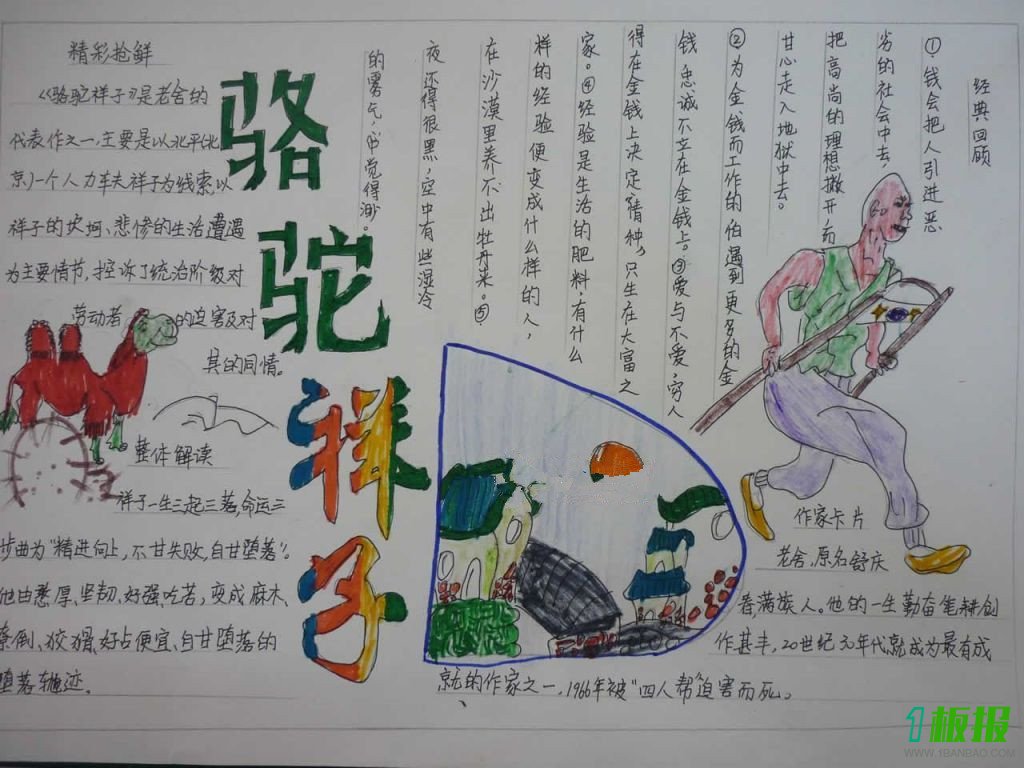 精彩抢鲜
《骆驼祥子》是老舍的
代表作之一,主要是以北平(北
京)一个人力车夫祥子为线索,以
祥子的坎坷、悲惨的生活遭遇
为主要情节,控诉了统治阶级对
劳动者的迫害及对
其的同情。
骆
驼
祥
子
整体解读
祥子一生三起三落,命运三
步曲为“精进向上,不甘失败,自甘堕落”。
他由憨厚、坚韧、好强、吃苦,变成麻木、
潦倒、狡猾、好占便宜、自甘堕落的
堕落轨迹。
经典回顾
①钱会把人引进恶
劣的社会中去,
把高尚的理想撇开,而
甘心走入地狱中去。
②为金钱而工作的,怕遇到更多的金
钱,忠诚不立在金钱上。③爱与不爱,穷人
得在金钱上决定,情种,只生在大富之
家。④经验是生活的肥料,有什么
样的经验便变成什么样的人,
在沙漠里养不出牡丹来。⑤
夜还得很黑,空中有些湿冷
的雾气,心中觉得渺。
作家卡片
老舍,原名舒庆
春,满族人。他的一生勤奋笔耕,创
作甚丰,20世纪30年代就成为最有成
就的作家之一,1966年被“四人帮”迫害而死。
1板报
WWW.1BANBAO.COM